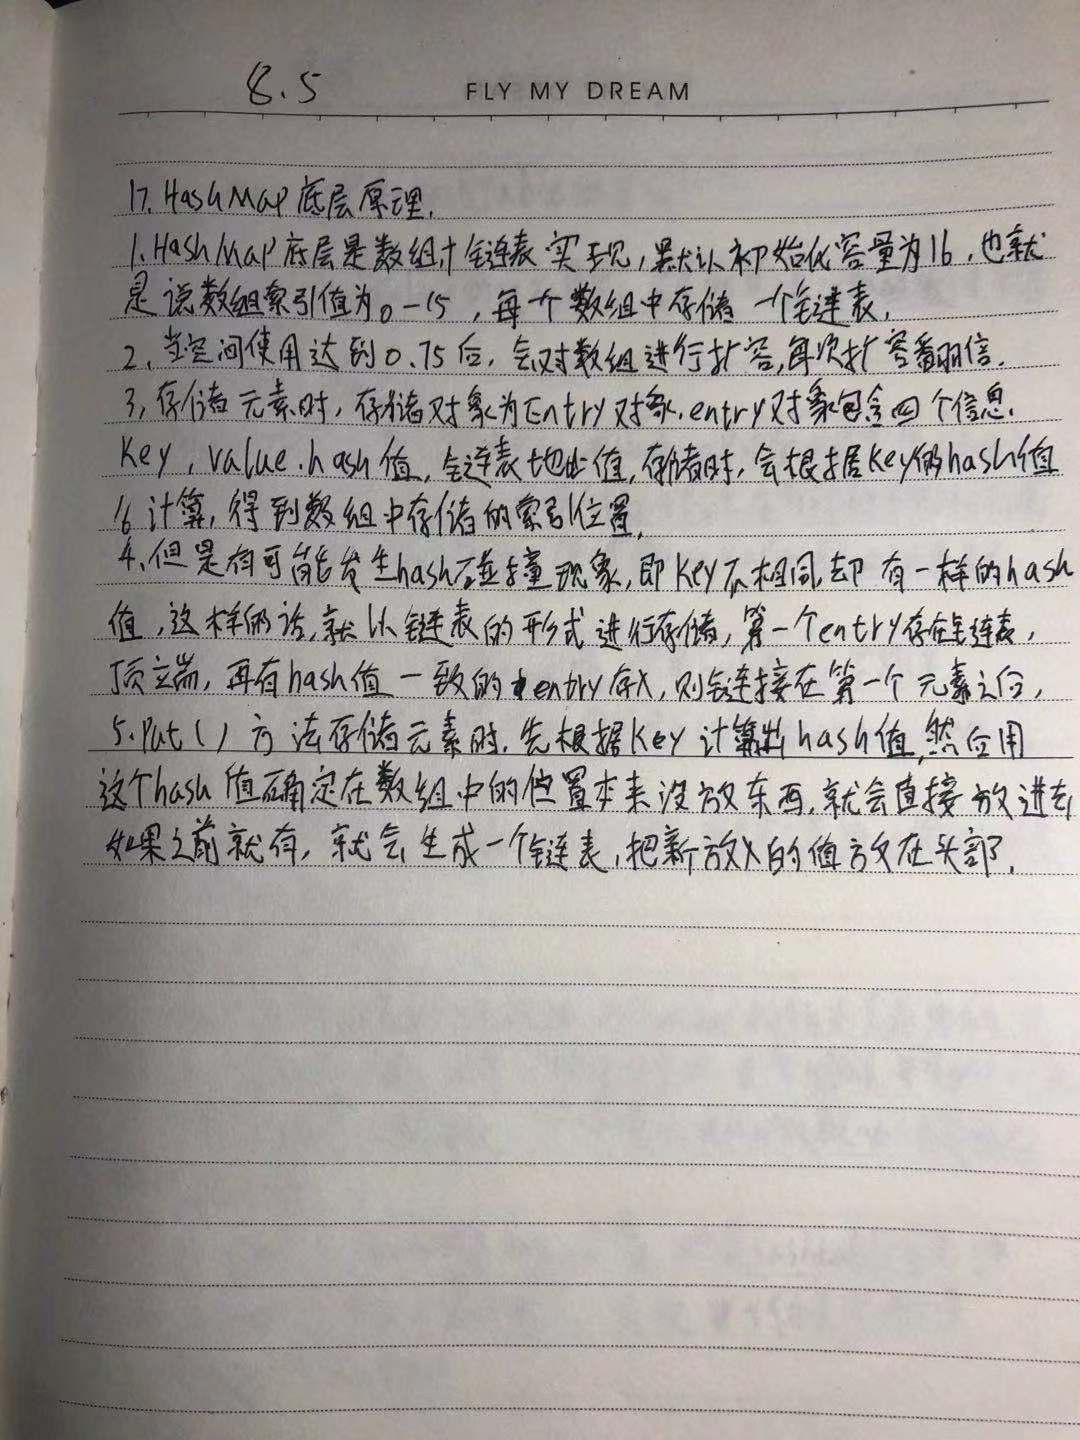 8.5 FLY MY DREAM
17. HashMap 底层原理.
1. HashMap 底层是数组+链表实现，默认初始化容量为16，也就
是说数组索引值为0-15，每个数组中存储一个链表.
2、当空间使用达到0.75后，会对数组进行扩容,再次扩容翻倍.
3，存储元素时，存储对象为Entry对象. entry对象包含四个信息.
Key，value. hash值，链表地址值，存储时，会根据Key的hash值
16计算，得到数组中存储的索引位置.
4、但是有可能发生hash碰撞现象，即Key不相同，却有一样的hash
值，这样的话，就以链表的形式进行存储，第一个entry存在链表，
顶端，再有hash值一致的entry存入，则链接在第一个元素之后，
5. Put() 方法存储元素时，先根据Key计算出hash值，然后用
这个hash值确定在数组中的位置本来没放东西，就会直接放进去
如果之前就有，就会生成一个链表，把新放入的值放在头部.